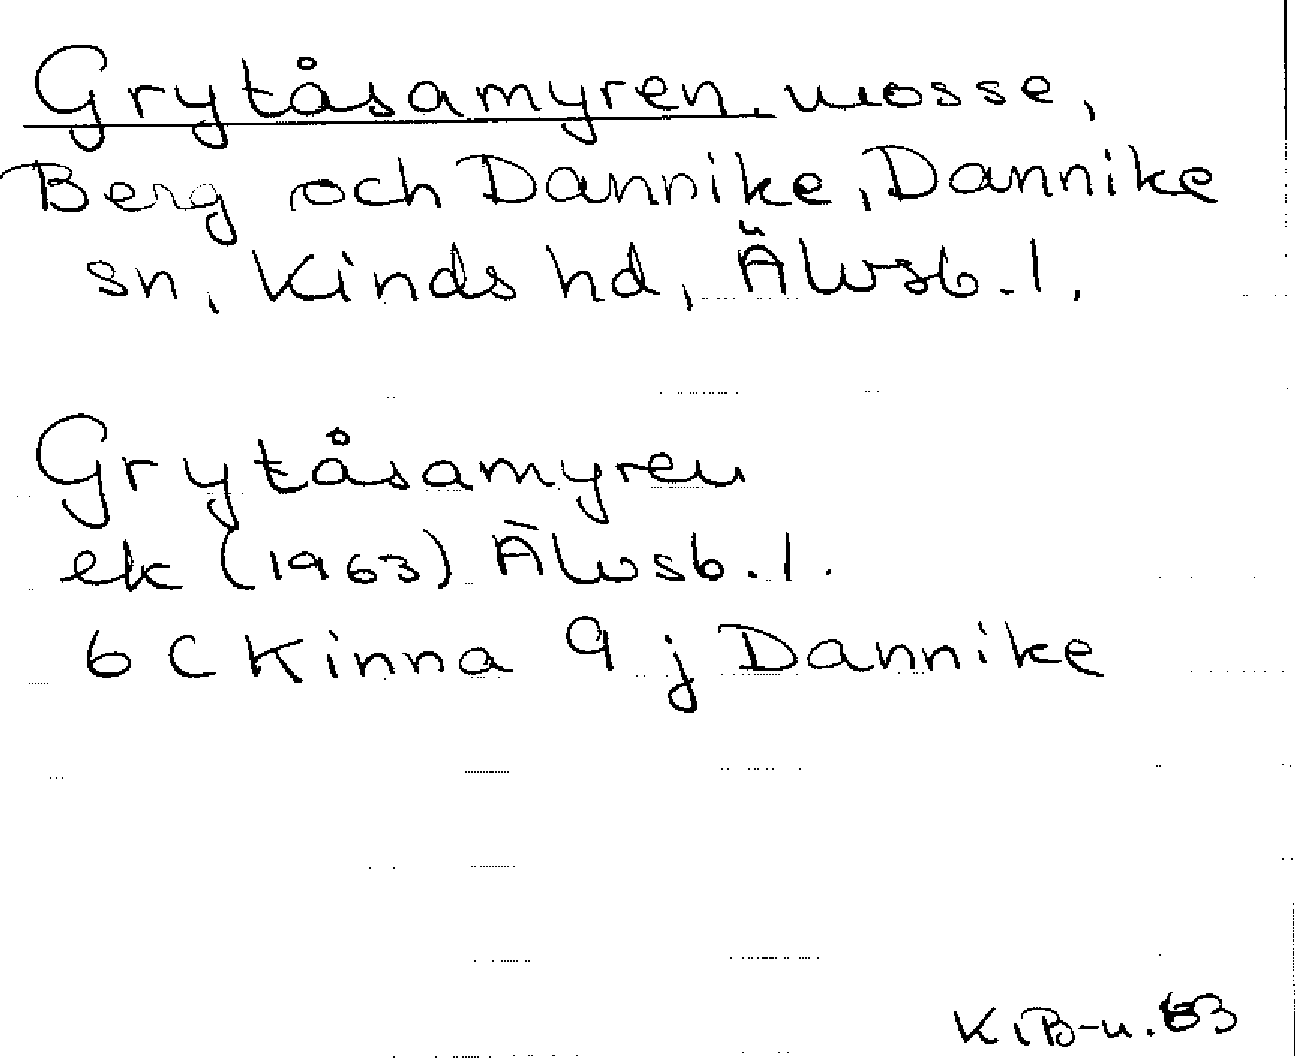 Grytåsamyren. mosse,
Berg och Dannike, Dannike
sn, Kinds hd, Älvsb. l.
Grytåsamyren
ek (1963) Älvsb. l.
6 C Kinna 9 j Dannike
K.B-n. 63